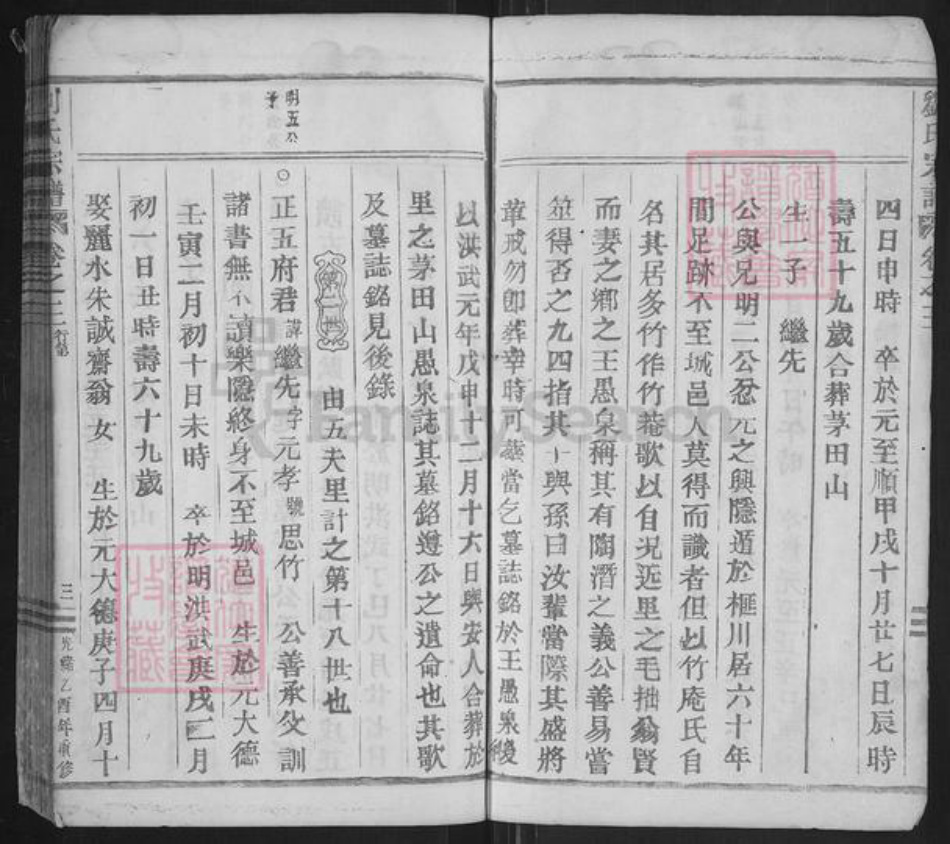 四日申時　卒於元至順甲戌十月廿七日辰時
壽五十九歲合葬茅田山
生一子　繼先
公與兄明二公忍元之興隱遁於框川居六十年
間足跡不至城邑人莫得而識者但以竹庵氏自
名其居多竹作竹菴歌以自況近里之毛拙翁賢
而妻之鄉之王愚泉稱其有陶潛之義公善易當
筮得否之九四指其卜與孫曰汝輩當際其盛將
葬戒勿即葬幸時可葬當乞墓誌銘於王愚泉後
以洪武元年戊申十二月十六日與安人合葬於
里之茅田山愚泉誌其墓銘遵公之遺命也其歌
及墓誌銘見後錄
第二世　由五夫里計之第十八世也
明五公
子
○正五府君諱繼先字元孝號思竹　公善承父訓
諸書無不讀樂隱終身不至城邑　生於元大德
壬寅二月初十日未時　卒於明洪武庚戌二月
初一日丑時壽六十九歲
娶麗水朱誠齋翁女　生於元大德庚子四月十
劉氏宗譜　卷之三　行第
三　光緒乙酉年重修
劉氏宗譜
FamilySearch